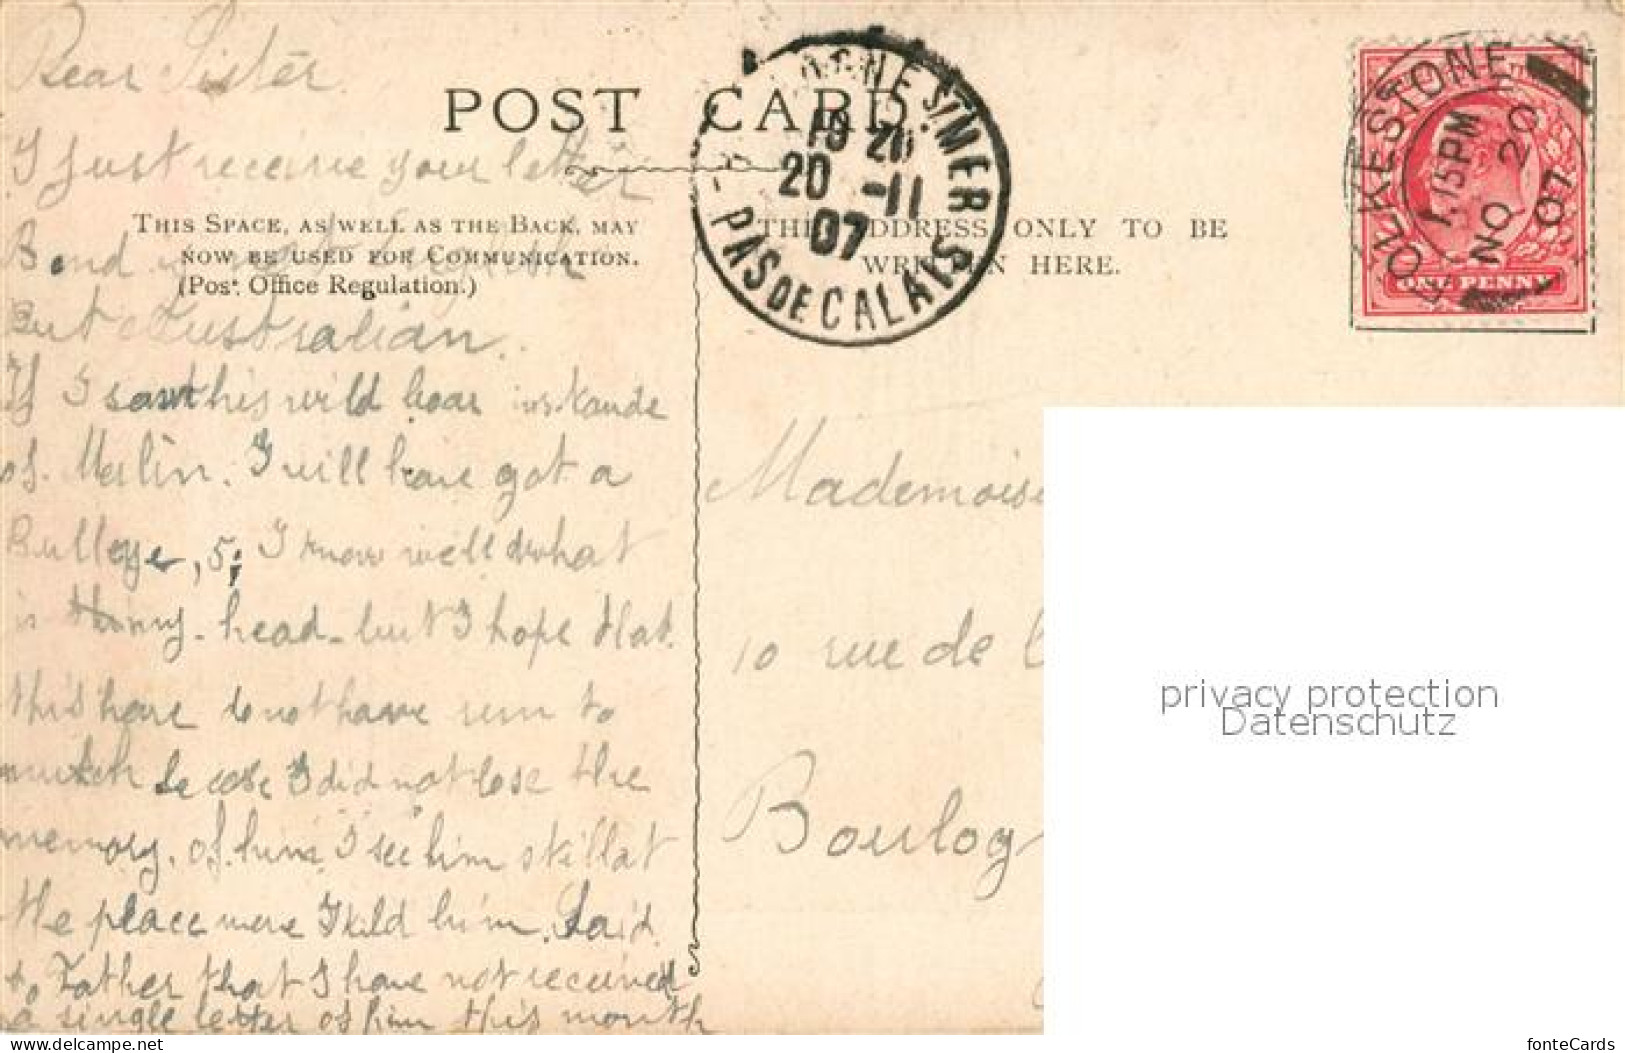 Dear Sister
POST CARD
I just receive your letter
THIS SPACE, AS WELL AS THE BACK, MAY
NOW BE USED FOR COMMUNICATION.
(Post Office Regulation.)
Bond is not english
But Australian.
If I saw this wild boar
of Merlin. I will have got a
I know well what
is head - but I hope that
this hare do not have run to
much becose I did not lose the
memory. of him I see him still at
the place were I kild him. Said
to Father that I have not received
a single letter of him this month
THE ADDRESS ONLY TO BE
WRITTEN HERE.
BOULOGNE S/MER
10 20
20 -11
07
PAS DE CALAIS
FOLKESTONE
1.15PM
NO 20
07
ONE PENNY
Mademoise
10 rue de
Boulog
privacy protection
Datenschutz
www.delcampe.net
fonteCards